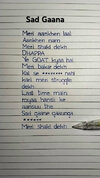 Sad Gaana
Meri aankhen laal
Aankhen nam
Meri shakl dekh
DHAPP
Ye GOAT kyaa hai
Meri bakre dekh
Kal se ******** nahi
kal meri struggle
dekh
Laal time main
mujaa hansi ke
aansuu the
Sad gaane gaaunga
******
Meri shakl dekh